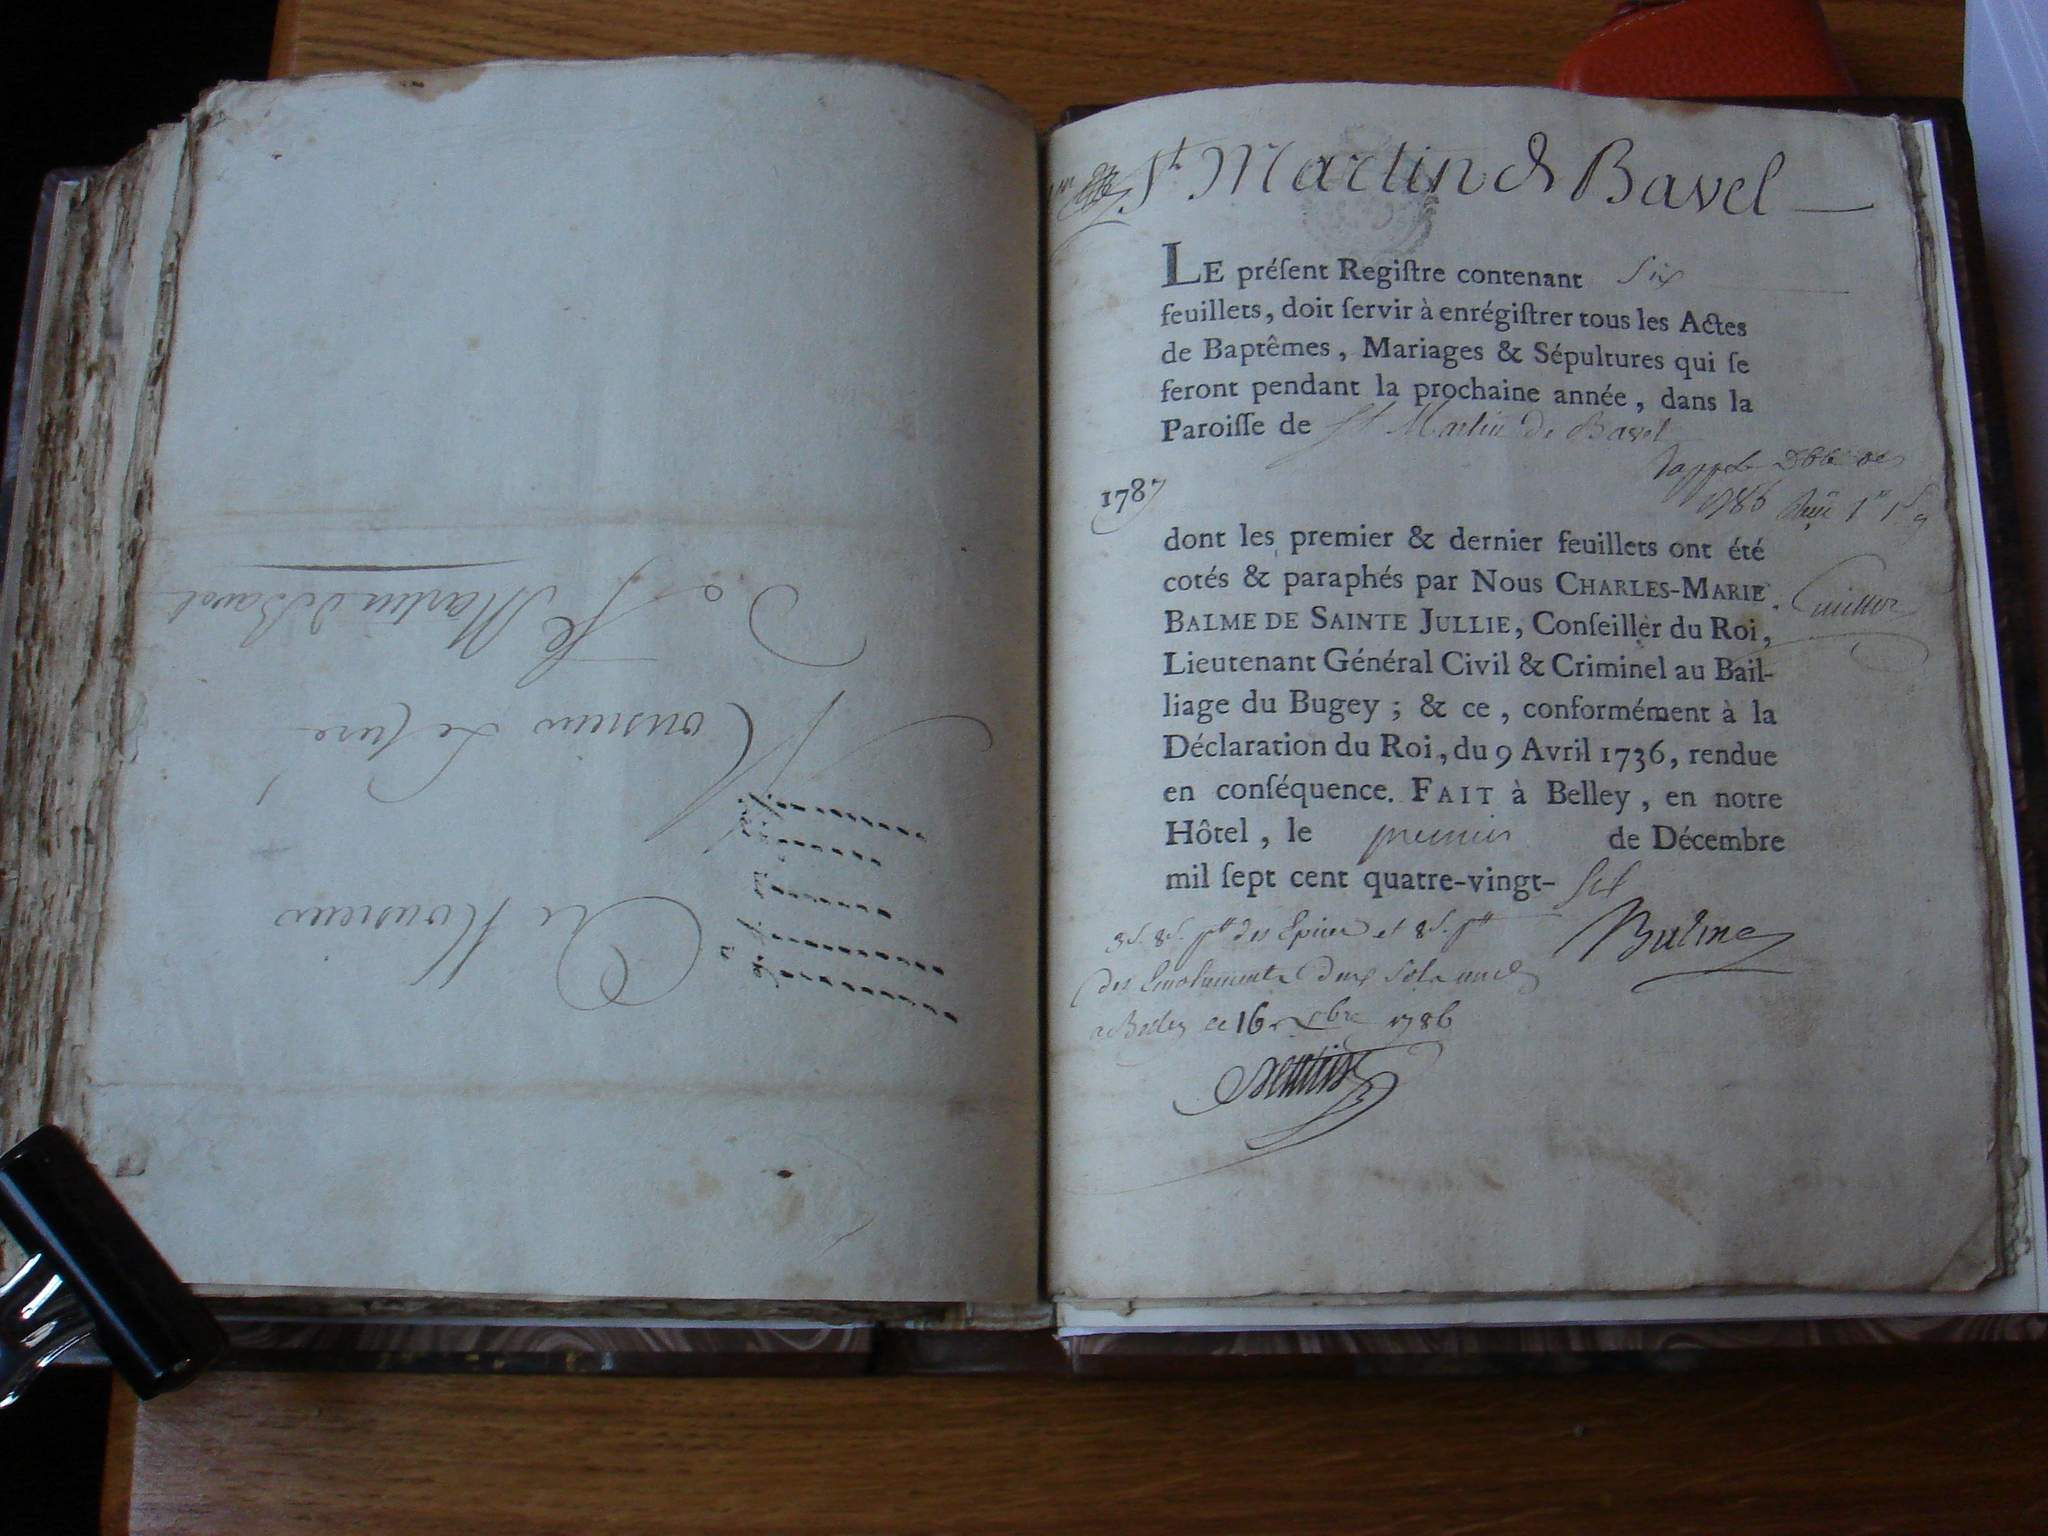 A Monsieur
Monsieur Le Curé
De St Martin de Bavel
St Martin de Bavel
LE préſent Regiſtre contenant six
feuillets, doit ſervir à enrégiſtrer tous les Actes
de Baptêmes, Mariages & Sépultures qui ſe
feront pendant la prochaine année, dans la
Paroiſſe de St Martin de Bavel
1787
1786
dont les premier & dernier feuillets ont été
cotés & paraphés par Nous CHARLES-MARIE
BALME DE SAINTE JULLIE, Conſeiller du Roi,
Lieutenant Général Civil & Criminel au Bail-
liage du Bugey; & ce, conformément à la
Déclaration du Roi, du 9 Avril 1736, rendue
en conſéquence. FAIT à Belley, en notre
Hôtel, le premier de Décembre
mil ſept cent quatre-vingt- six
Balme
a Belley ce 16 Xbre 1786